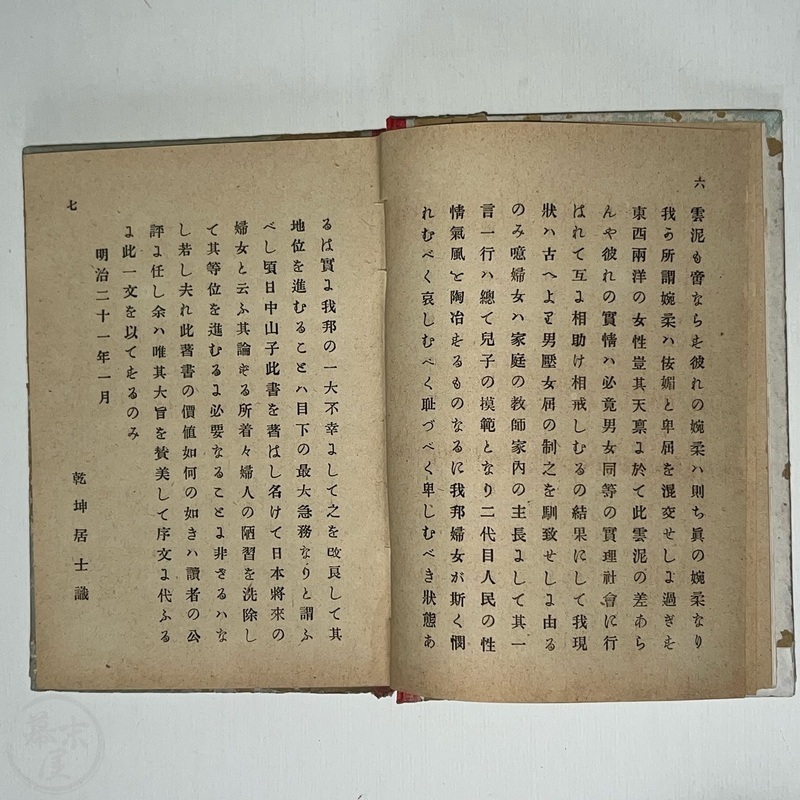 六
雲泥も啻ならを彼れの婉柔ハ則ち眞の婉柔なり
我う所謂婉柔ハ侫媚と卑屈を混交せしよ過ぎを
東西兩洋の女性豈其天禀よ於て此雲泥の差あら
んや彼れの實情ハ必竟男女同等の實理社會に行
はれて互よ相助け相戒しむるの結果にして我現
狀ハ古へより男壓女屈の制之を馴致せしよ由る
のみ噫婦女ハ家庭の敎師家內の主長よして其一
言一行ハ總て兒子の摸範となり二代目人民の性
情氣風を陶冶をるものなるに我邦婦女が斯く憫
れむべく哀しむべく耻づべく卑しむべき狀態あ
七
るは實よ我邦の一大不幸よして之を改良して其
地位を進むることハ目下の最大急務なりと謂ふ
べし頃日中山子此書を著はし名けて日本將來の
婦女と云ふ其論をる所着々婦人の陋習を洗除し
て其等位を進むるよ必要なることよ非さるハな
し若し夫れ此著書の價値如何の如きハ讀者の公
評よ任し余ハ唯其大旨を賛美して序文よ代ふる
よ此一文を以てをるのみ
明治二十一年一月
乾坤居士識
幕末屋